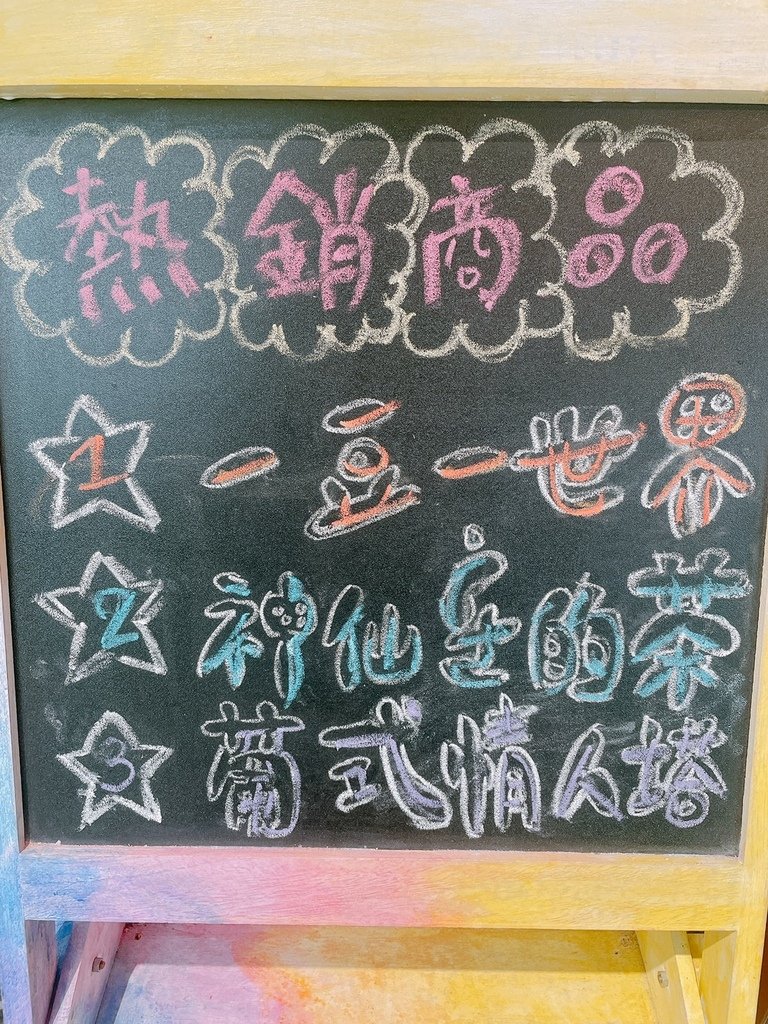 熱銷商品
1 一豆一世界
2 神仙室的茶
3 葡式情人塔